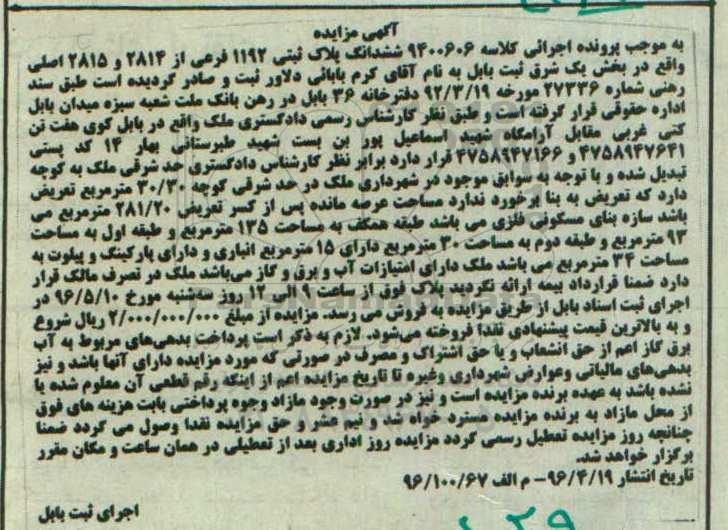 آگهی مزایده
به موجب پرونده اجرائی کلاسه ۹۴۰۰۶۰۶ ششدانگ پلاک ثبتی ۱۱۹۲ فرعی از ۲۸۱۴ و ۲۸۱۵ اصلی
واقع در بخش یک شرق ثبت بابل به نام آقای کرم بابائی دلاور ثبت و صادر گردیده است طبق سند
رهنی شماره ۲۷۳۳۶ مورخه ۹۲/۳/۱۹ دفترخانه ۳۶ بابل در رهن بانک ملت شعبه سبزه میدان بابل
اداره حقوقی قرار گرفته است و طبق نظر کارشناس رسمی دادگستری ملک واقع در بابل کوی هفت تن
کتی غربی مقابل آرامگاه شهید اسماعیل پور بن بست شهید طبرستانی بهار ۱۴ کد پستی
۴۷۵۸۹۴۷۶۴۱ و ۴۷۵۸۹۴۷۱۶۶ قرار دارد برابر نظر کارشناس دادگستری حد شرقی ملک به کوچه
تبدیل شده و با توجه به سوابق موجود در شهرداری ملک در حد شرقی کوچه ۳۰/۳۰ مترمربع تعریض
دارد که تعریض به بنا برخورد ندارد مساحت عرصه مانده پس از کسر تعریض ۲۸۱/۲۰ مترمربع می
باشد سازه بنای مسکونی فلزی می باشد طبقه همکف به مساحت ۱۳۵ مترمربع و طبقه اول به مساحت
۹۳ مترمربع و طبقه دوم به مساحت ۳۰ مترمربع دارای ۱۵ مترمربع انباری و دارای پارکینگ و پیلوت به
مساحت ۳۴ مترمربع می باشد ملک دارای امتیازات آب و برق و گاز می‌باشد ملک در تصرف مالک قرار
دارد ضمنا قرارداد بیمه ارائه نگردید پلاک فوق از ساعت ۹ الی ۱۲ روز سه‌شنبه مورخ ۹۶/۵/۱۰ در
اجرای ثبت اسناد بابل از طریق مزایده به فروش می رسد. مزایده از مبلغ ۲/۰۰۰/۰۰۰/۰۰۰ ریال شروع
و به بالاترین قیمت پیشنهادی نقدا فروخته می‌شود. لازم به ذکر است پرداخت بدهی‌های مربوط به آب
برق گاز اعم از حق انشعاب و یا حق اشتراک و مصرف در صورتی که مورد مزایده دارای آنها باشد و نیز
بدهی‌های مالیاتی وعوارض شهرداری وغیره تا تاریخ مزایده اعم از اینکه رقم قطعی آن معلوم شده یا
نشده باشد به عهده برنده مزایده است و نیز در صورت وجود مازاد وجوه پرداختی بابت هزینه های فوق
از محل مازاد به برنده مزایده مسترد خواهد شد و نیم عشر و حق مزایده نقدا وصول می گردد ضمنا
چنانچه روز مزایده تعطیل رسمی گردد مزایده روز اداری بعد از تعطیلی در همان ساعت و مکان مقرر
برگزار خواهد شد.
تاریخ انتشار ۹۶/۴/۱۹- م الف ۹۶/۱۰۰/۶۷
اجرای ثبت بابل